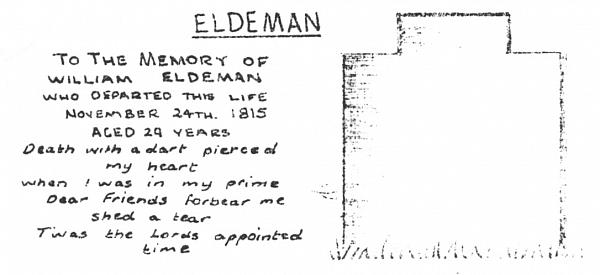 ELDEMAN
TO THE MEMORY OF
WILLIAM ELDEMAN
WHO DEPARTED THIS LIFE
NOVEMBER 24TH. 1815
AGED 29 YEARS
Death with a dart pierced
my heart
when I was in my prime
Dear Friends forbear me
shed a tear
Twas the Lords appointed
time